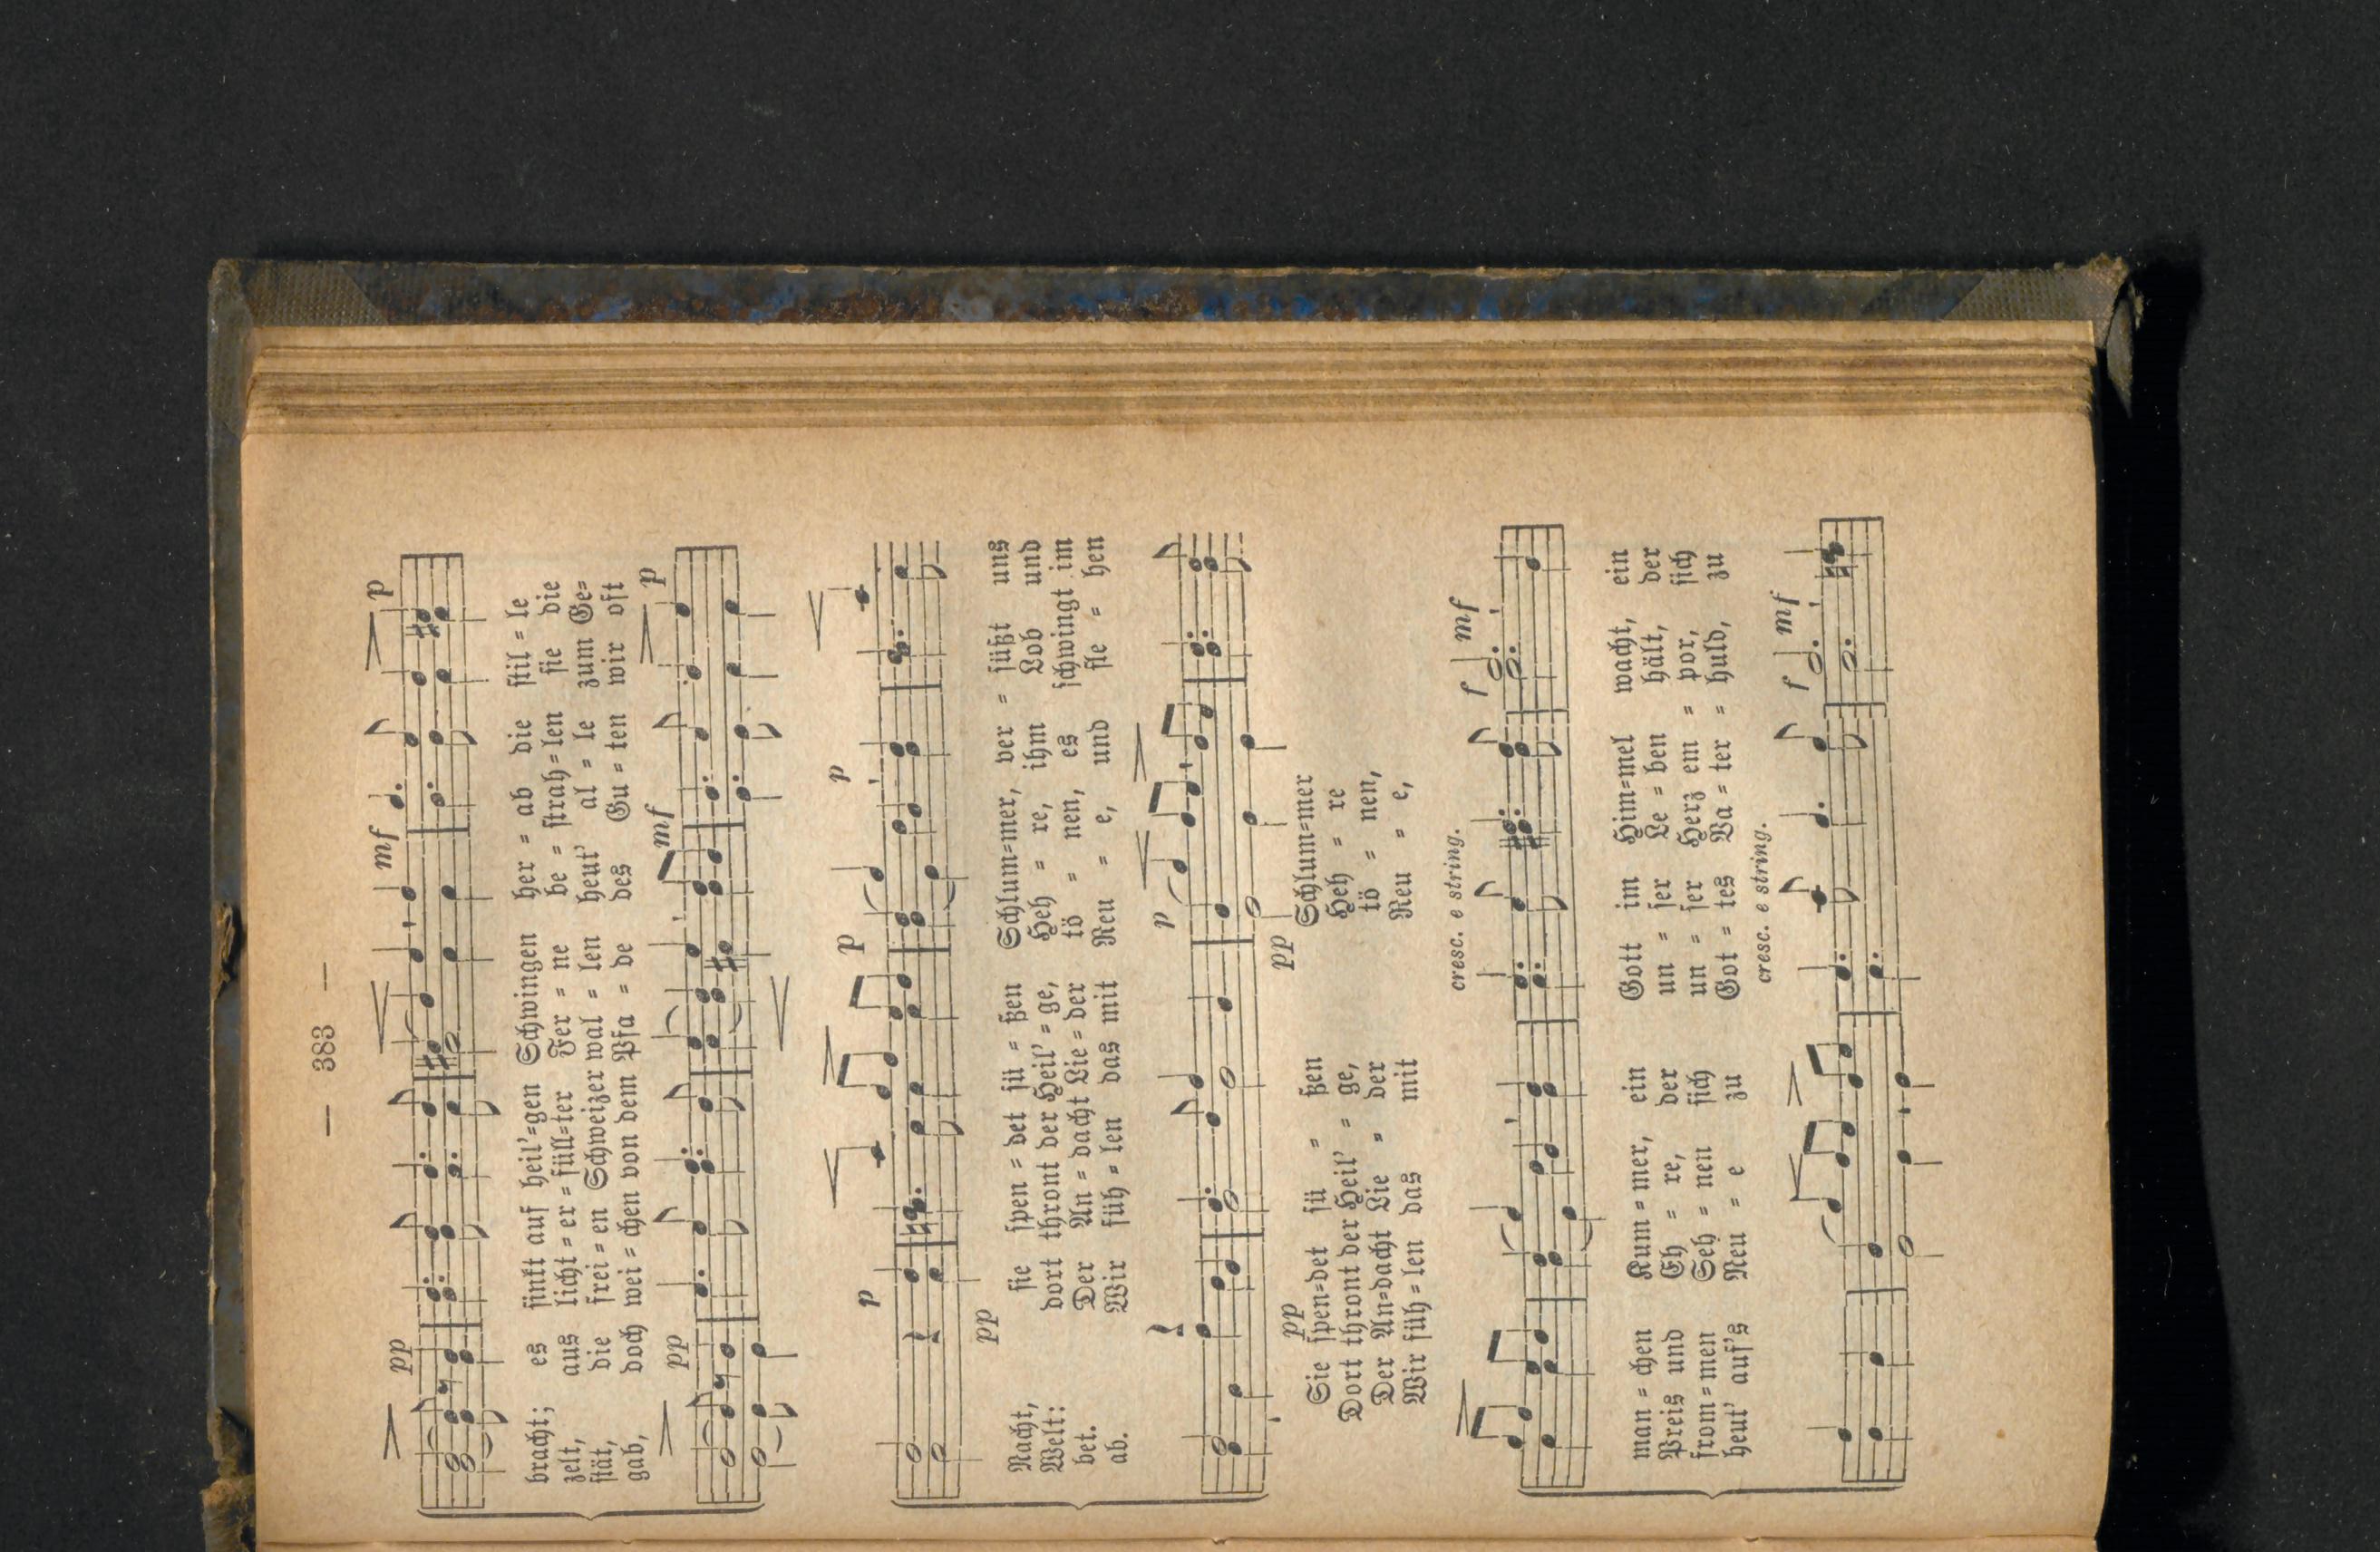 — 383 —
pp mf p
bracht; es sinkt auf heil'=gen Schwingen her = ab die stil = le
zelt, aus licht = er = füll=ter Fer = ne be = strah = len sie die
stät, die frei = en Schweizer wal = len heut' al = le zum Ge=
gab, doch wei = chen von dem Pfa = de des Gu = ten wir oft
pp mf p
p p p
pp
Nacht, sie spen = det sü = ßen Schlum=mer, ver = süßt uns
Welt: dort thront der Heil' = ge, Heh = re, ihm Lob und
bet. Der An = dacht Lie = der tö = nen, es schwingt im
ab. Wir füh = len das mit Reu = e, und fle = hen
p
pp pp
Sie spen=det sü = ßen Schlum=mer
Dort thront der Heil' = ge, Heh = re
Der An=dacht Lie = der tö = nen,
Wir füh = len das mit Reu = e,
cresc. e string. f mf
man = chen Kum = mer, ein Gott im Him=mel wacht, ein
Preis und Eh = re, der un = ser Le = ben hält, der
from = men Seh = nen sich un = ser Herz em = por, sich
heut' auf's Neu = e zu Got = tes Va = ter = huld, zu
cresc. e string. f mf